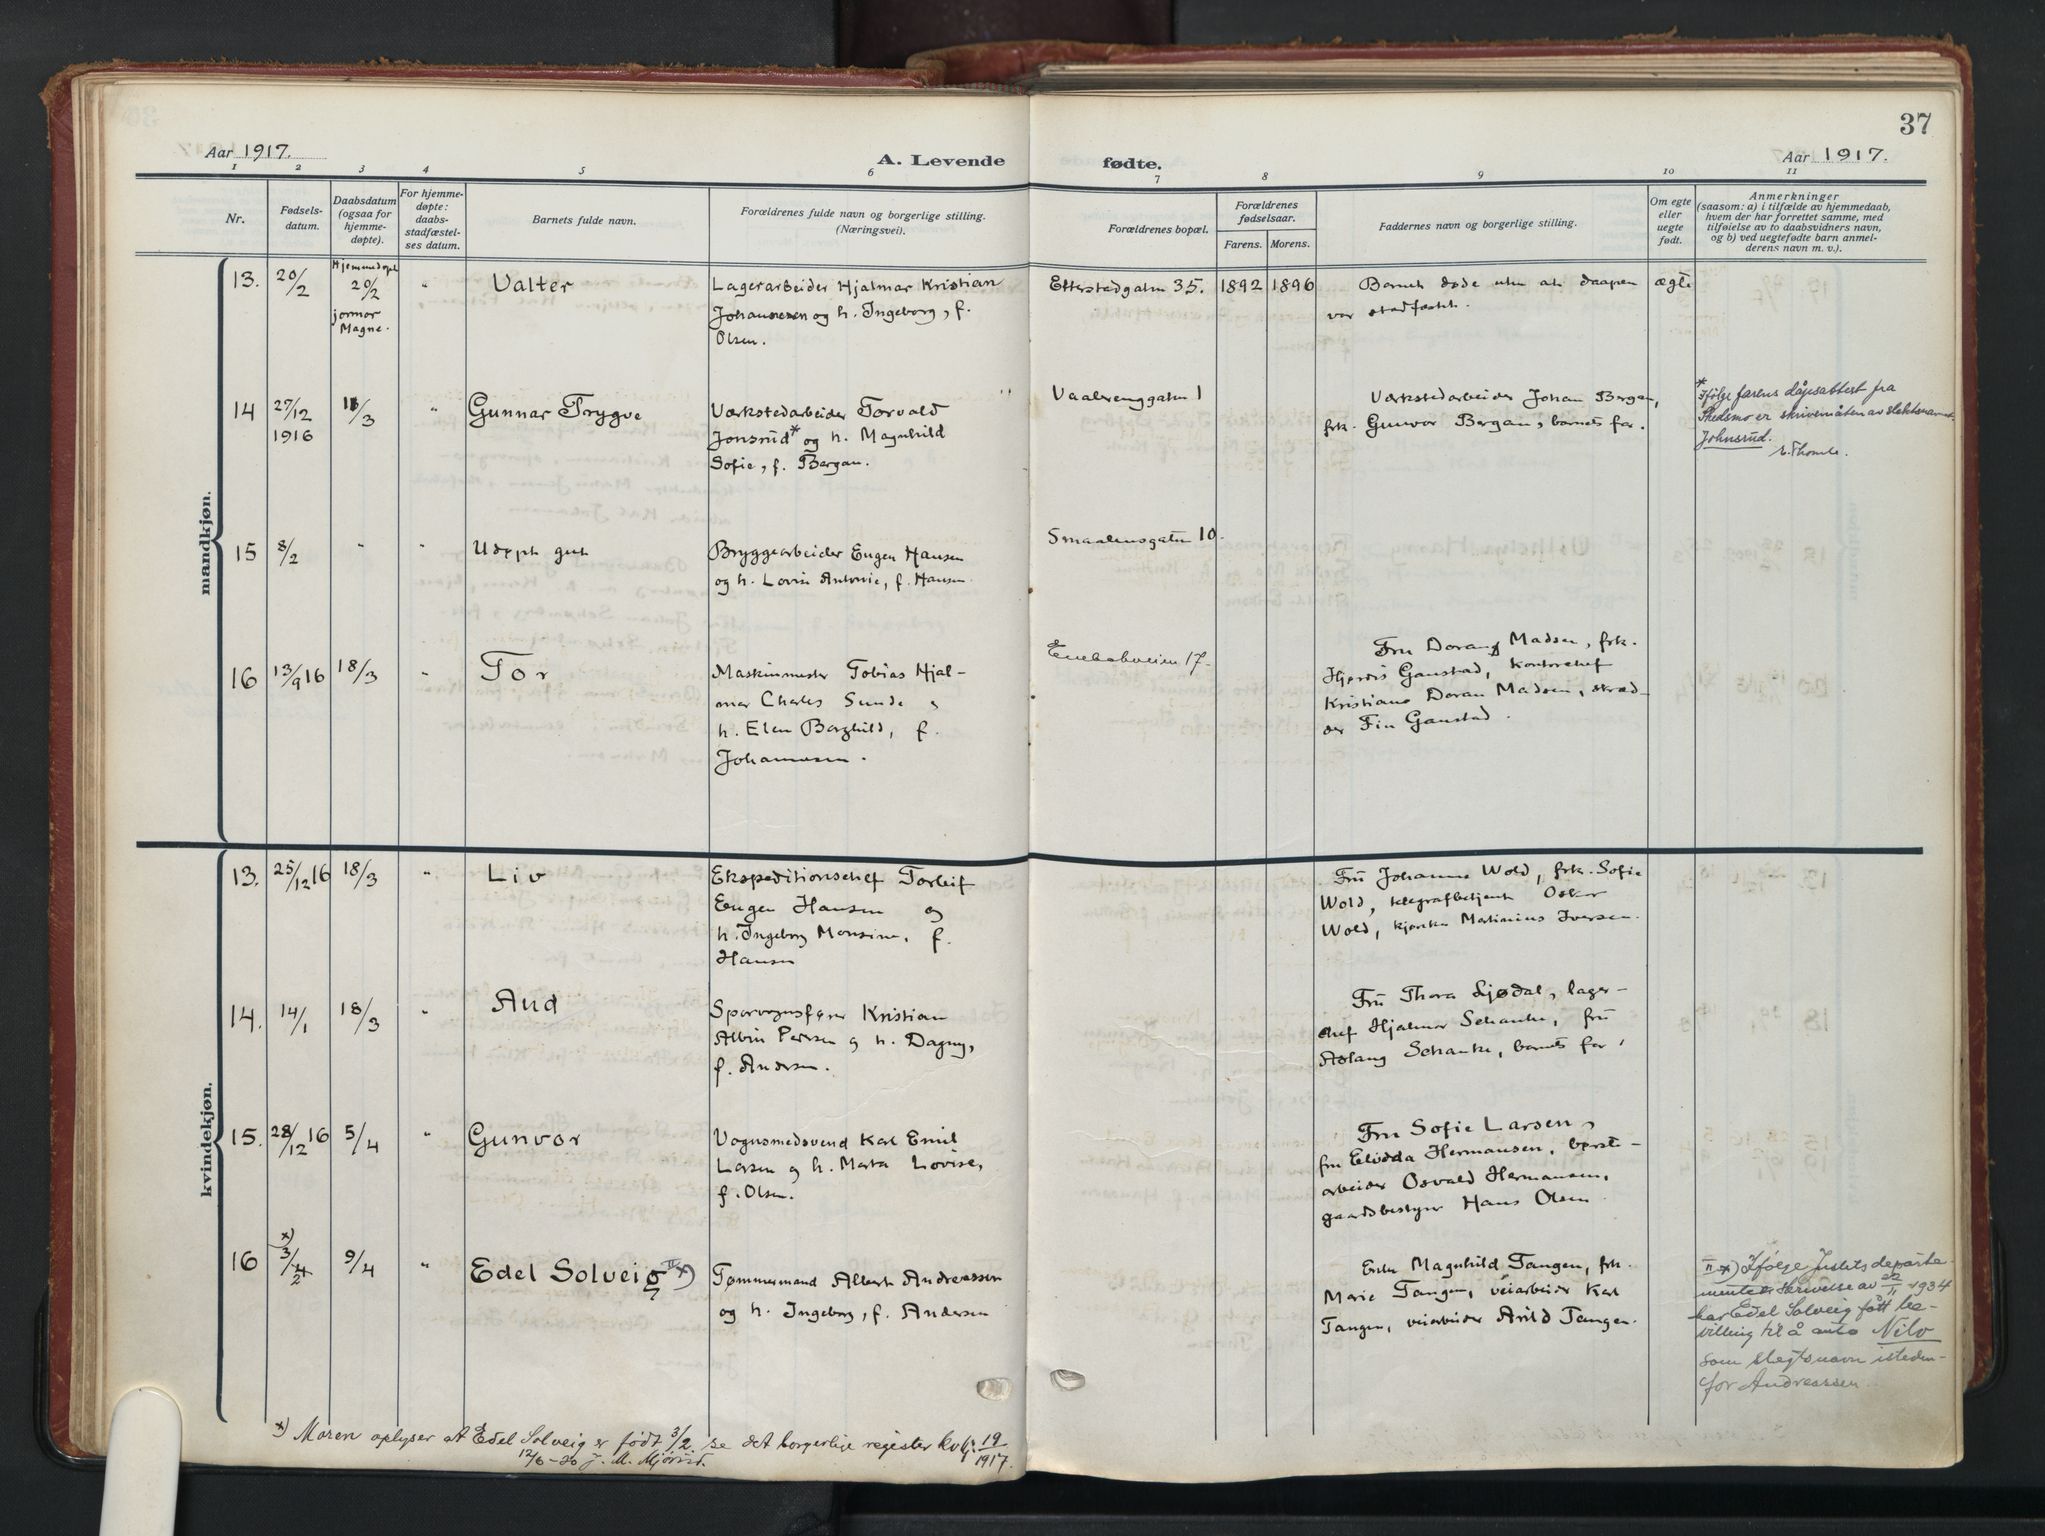 37
Aar 1917.
A. Levende
fødte.
Aar 1917.
1 2 3 4 5 6 7 8 9 10 11
Nr.
Fødsels-
datum.
Daabsdatum
(ogsaa for
hjemme-
døpte).
For hjemme-
døpte:
daabs-
stadfæstel-
ses datum.
Barnets fulde navn.
Forældrenes fulde navn og borgerlige stilling.
(Næringsvei).
Forældrenes bopæl.
Forældrenes
fødselsaar.
Farens. Morens.
Faddernes navn og borgerlige stilling.
Om egte
eller
uegte
født.
Anmerkninger
(saasom: a) i tilfælde av hjemmedaab,
hvem der har forrettet samme, med
tilføielse av to daabsvidners navn,
og b) ved uegtefødte barn anmel-
derens navn m. v.).
mandkjøn.
13. 20/2
Hjemmedøpt
20/2
jormor
Magne.
" Valter
Lagerarbeider Hjalmar Kristian
Johannesen og h. Ingeborg, f.
Olsen.
Etterstadgaten 35. 1892 1896
Barnet døde uten at daapen
var stadfæstet.
ægte
14 27/12
1916
11/3 " Gunnar Trygve
Værkstedarbeider Torvald
Jonsrud* og h. Magnhild
Sofie, f. Bergan.
Vaalerenggaten 1
Værkstedarbeider Johan Bergan,
frk. Gunvor Bergan, barnets far.
*
Ifølge farens dåpsattest fra
Skedsmo er skrivemåten av slektsnavnet
Johnsrud.
15 8/2 " " Udøpt gut
Bryggearbeider Eugen Hansen
og h. Lovise Antonie, f. Hansen.
Smaalensgaten 10.
16 13/9 16 18/3 " Tor
Maskinmester Tobias Hjal-
mar Charles Sunde og
h. Elen Borghild, f.
Johannesen.
Enebakveien 17.
Fru Doran Madsen, frk.
Hjørdis Ganstad, kontorchef
Kristians Doran Madsen, skræd-
der Fin Ganstad.
kvindekjøn.
13. 25/12 16 18/3 " Liv
Ekspeditionschef Torleif
Eugen Hansen og
h. Ingeborg Monsine, f.
Hansen
Fru Johanne Wold, frk. Sofie
Wold, telegrafbetjent Oskar
Wold, Martinius Iversen.
14. 14/1 18/3 " Aud
Sporvognsfører Kristian
Albin Pedersen og h. Dagny,
f. Andersen.
Fru Thora Sjødal, lager-
chef Hjalmar Schanke, fru
Aslaug Schanke, barnets far,
15. 28/12 16 5/4 " Gunvor
Vognsmedsvend Karl Emil
Larsen og h. Marta Lovise,
f. Olsen.
Fru Sofie Larsen,
fru Elvida Hermansen, børste-
arbeider Osvald Hermansen,
gaardsbestyrer Hans Olsen
16 x) 3/2 9/4 " Edel Solveig II x)
Tømmermand Albert Andreassen
og h. Ingeborg, f. Andersen
Enke Magnhild Tangen, frk.
Marie Tangen, veiarbeider Karl
Tangen, veiarbeider Arild Tangen.
II x) Ifølge Justitsdeparte-
mentets skrivelse av 22/11 1934
har Edel Solveig fått be-
villing til å anta Nilo
som slegtsnavn isteden-
for Andreassen.
x) Moren oplyser at Edel Solveig er født 3/2. se det borgerlige register kvkj. 19/1917.
12/6-26 J. M. Mjørud.